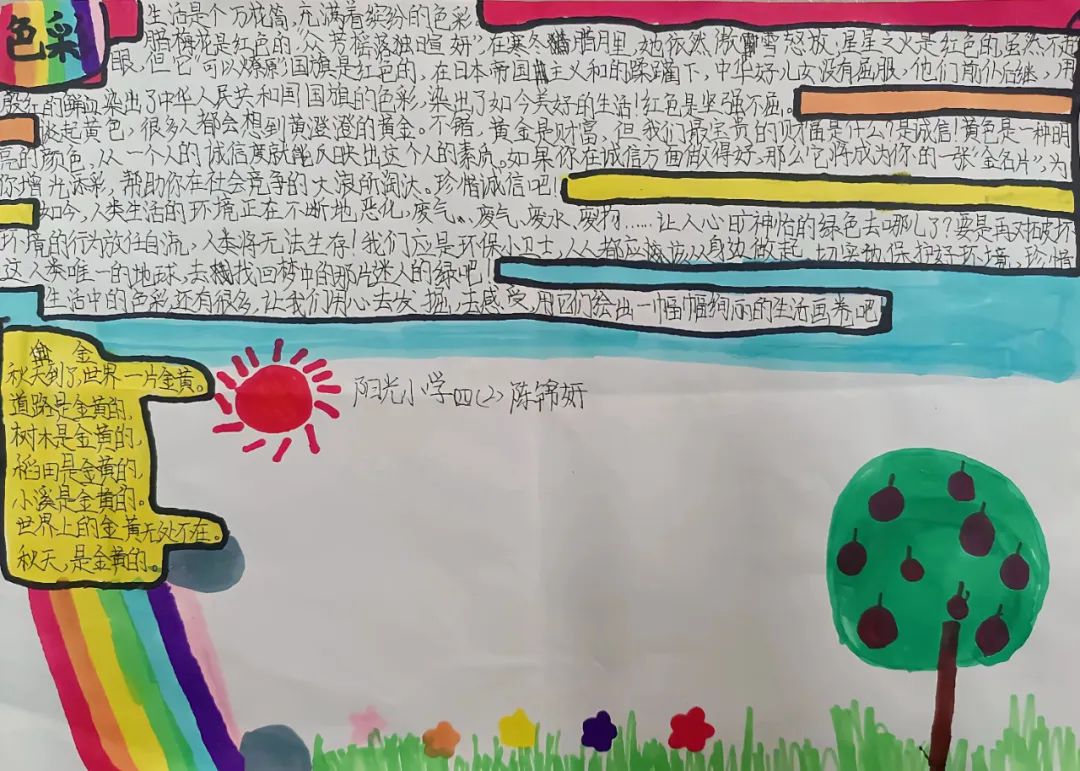 色采
生活是个万花筒,充满着缤纷的色彩。
腊梅花是红色的,"众芳摇落独暄妍",在寒冬腊月里,她依然傲雪怒放;星星之火是红色的,虽然不起
眼,但它"可以燎原";国旗是红色的,在日本帝国主义和的蹂躏下,中华好儿女没有屈服,他们前仆后继,用
殷红的鲜血染出了中华人民共和国国旗的色彩,染出了如今美好的生活!红色是坚强不屈!
谈起黄色,很多人都会想到黄澄澄的黄金。不错,黄金是财富,但我们最宝贵的财富是什么?是诚信!黄色是一种明
亮的颜色,从一个人的诚信度就能反映出这个人的素质。如果你在诚信方面做得好,那么它将成为你的一张"金名片",为
你增光添彩,帮助你在社会竞争的大浪所淘汰。珍惜诚信吧!
如今,人类生活的环境正在不断地恶化,废气、废气、废水、废物……让人心旷神怡的绿色去哪儿了?要是再对破坏
环境的行为放任自流,人类将无法生存!我们应是环保小卫士,人人都应该从身边做起,切实地保护好环境,珍惜
这人类唯一的地球,去找回梦中的那片迷人的绿吧!
生活中的色彩还有很多,让我们用心去发掘,去感受,用它们绘出一幅幅绚丽的生活画卷吧
金
秋天到了,世界一片金黄。
道路是金黄的,
树木是金黄的,
稻田是金黄的,
小溪是金黄的。
世界上的金黄无处不在。
秋天,是金黄的。
阳光小学四(2)陈锦妍